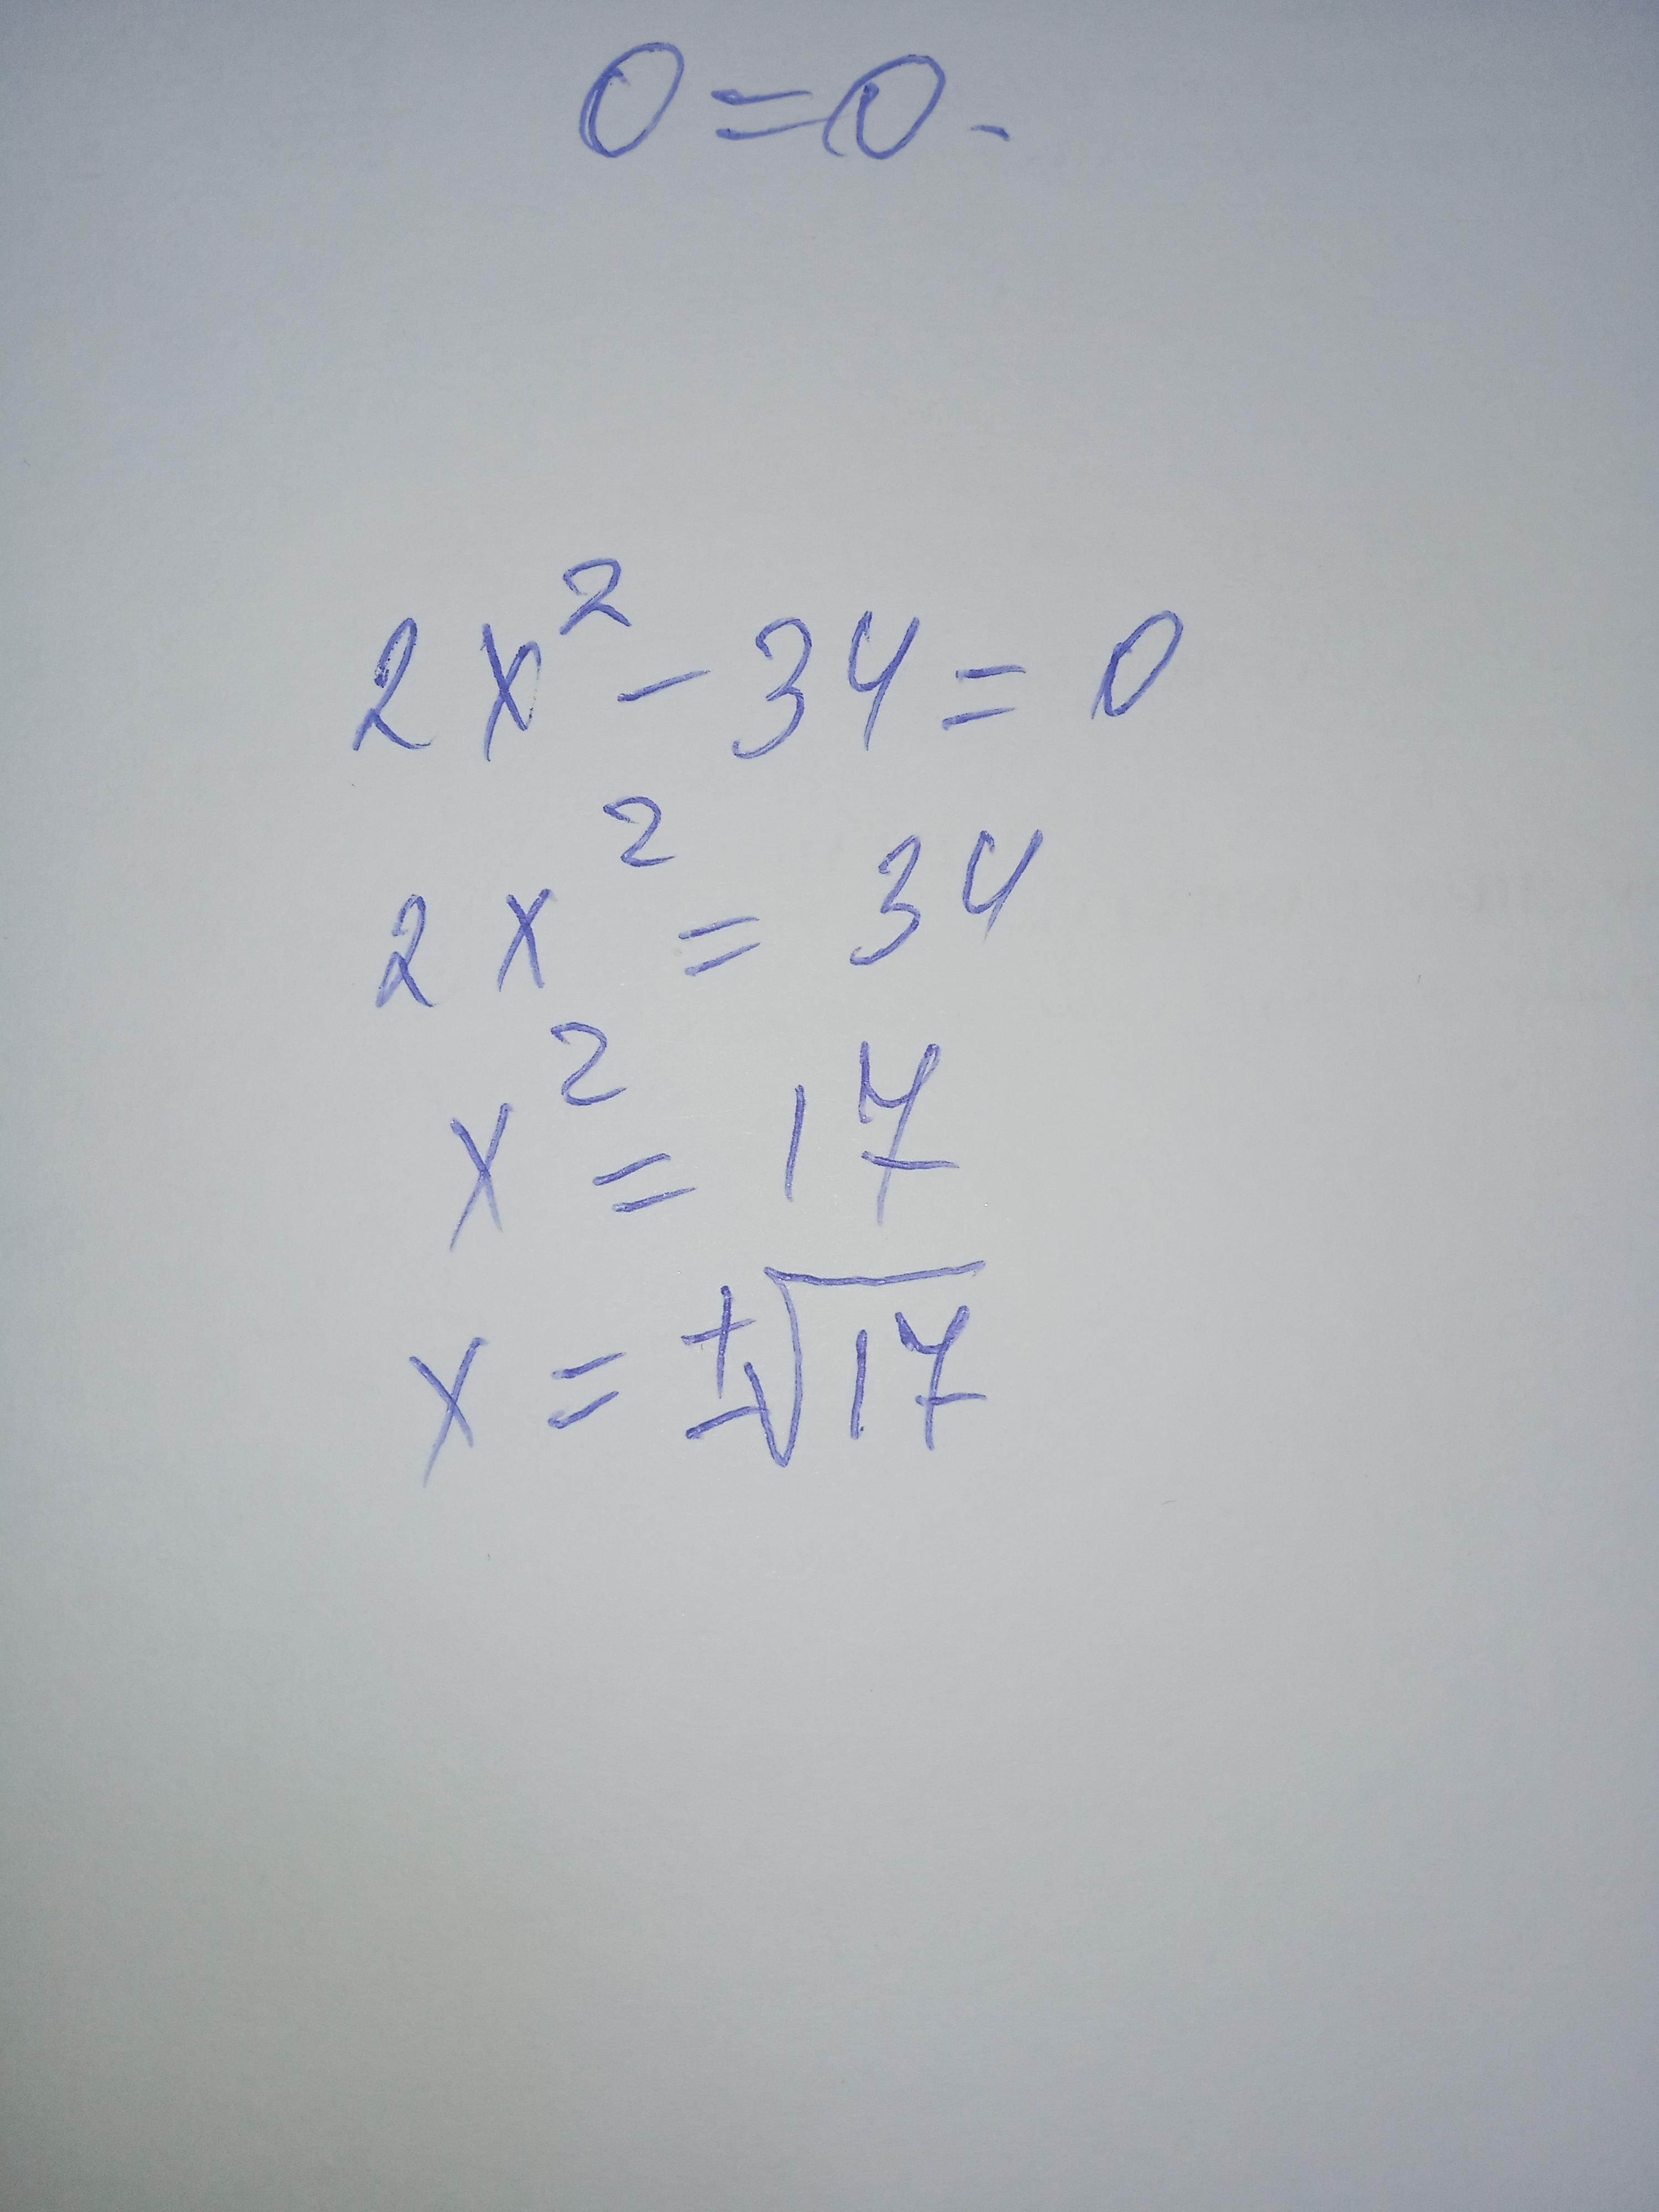 0=0.
2x²-34=0
2x²=34
x²=17
x=±√17